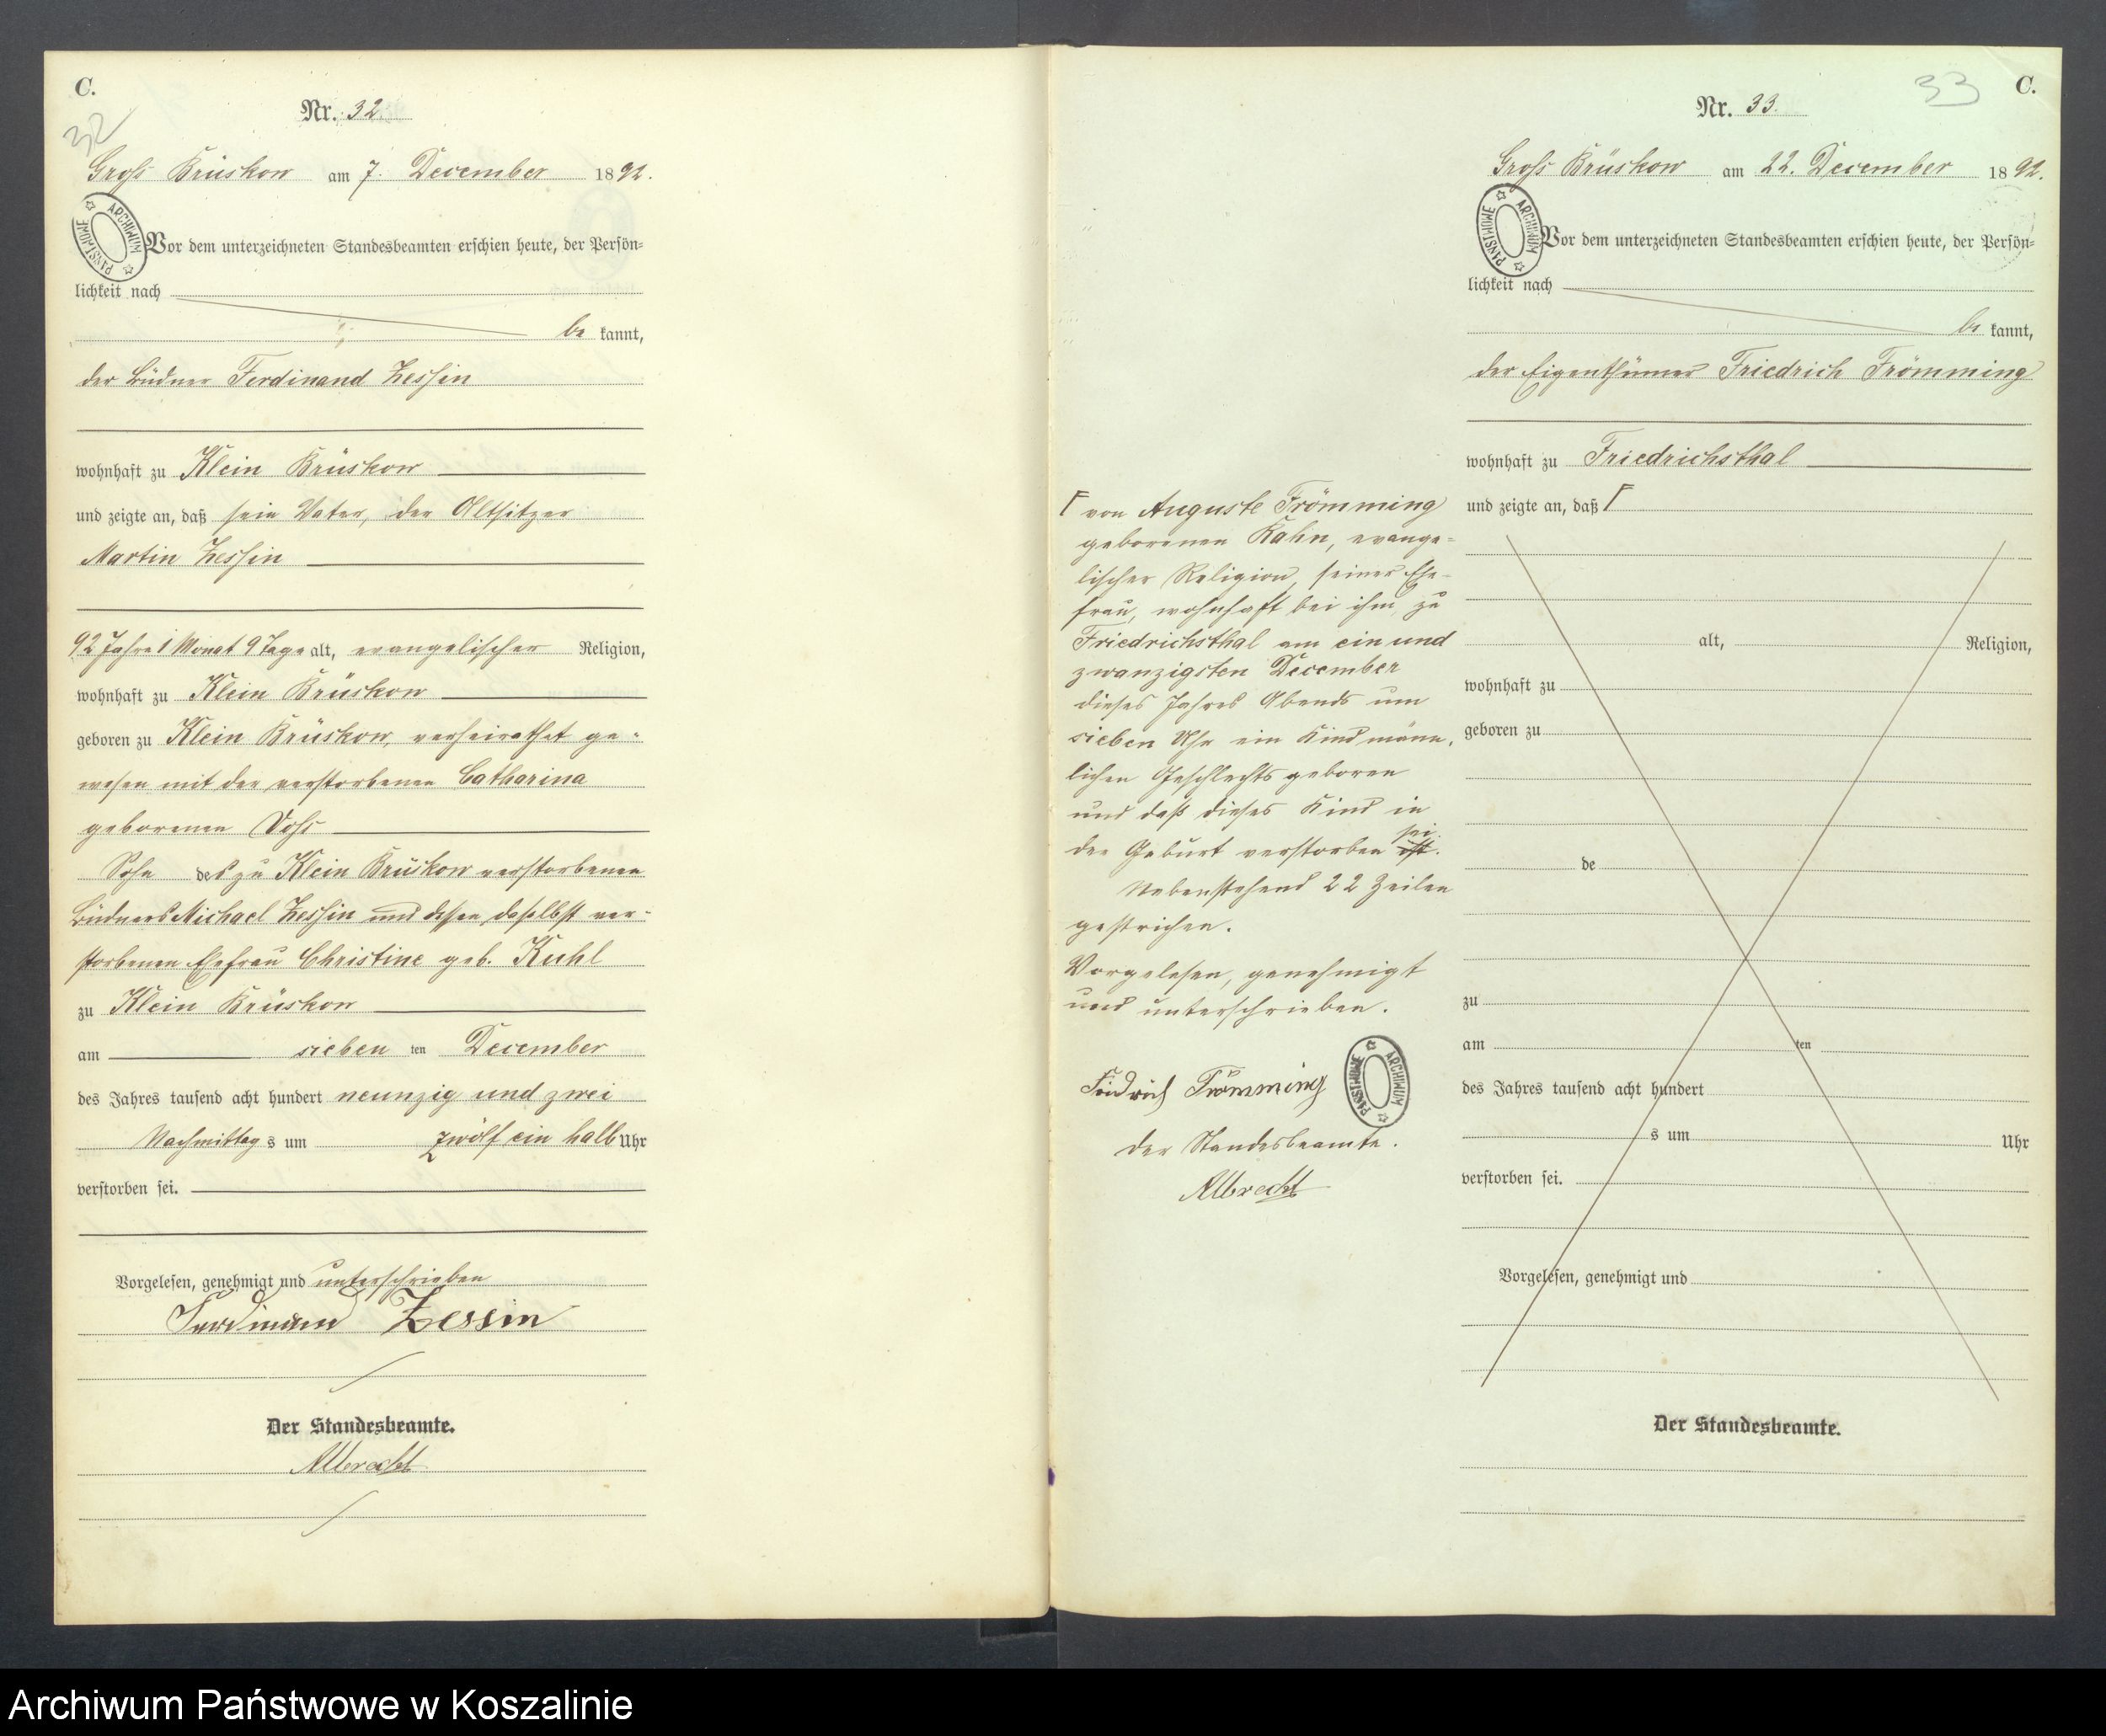 C.
32
Nr. 32.
Groß Brüskow am 7. December 1892.
ARCHIWUM PAŃSTWOWE
Vor dem unterzeichneten Standesbeamten erschien heute, der Persön=
lichkeit nach
be kannt,
der Büdner Ferdinand Zessin
wohnhaft zu Klein Brüskow
und zeigte an, daß sein Vater, der Altsitzer
Martin Zessin
92 Jahre 1 Monat 9 Tage alt, evangelischer Religion,
wohnhaft zu Klein Brüskow
geboren zu Klein Brüskow, verheirathet ge=
wesen mit der verstorbenen Catharina
geborenen Voß
Sohn des zu Klein Brüskow verstorbenen
Büdners Michael Zessin und dessen daselbst ver=
storbenen Ehefrau Christine geb. Kuhl
zu Klein Brüskow
am sieben ten December
des Jahres tausend acht hundert neunzig und zwei
Nachmittag s um zwölf ein halb Uhr
verstorben sei.
Vorgelesen, genehmigt und unterschrieben
Ferdinand Zessin
Der Standesbeamte.
Albrecht
33
C.
Nr. 33.
Groß Brüskow am 22. December 1892.
ARCHIWUM PAŃSTWOWE
Vor dem unterzeichneten Standesbeamten erschien heute, der Persön=
lichkeit nach
be kannt,
der Eigenthümer Friedrich Frömming
wohnhaft zu Friedrichsthal
und zeigte an, daß Γ
alt, Religion,
wohnhaft zu
geboren zu
de
zu
am ten
des Jahres tausend acht hundert
s um Uhr
verstorben sei.
Vorgelesen, genehmigt und
Der Standesbeamte.
Γ von Auguste Frömming
geborenen Kahn, evange=
lischer Religion, seiner Ehe=
frau, wohnhaft bei ihm, zu
Friedrichsthal am ein und
zwanzigsten December
dieses Jahres Abends um
sieben Uhr ein Kind männ=
lichen Geschlechts geboren
und daß dieses Kind in
der Geburt verstorben ist sei.
Nebenstehend 22 Zeilen
gestrichen.
Vorgelesen, genehmigt
und unterschrieben.
Friedrich Frömming
ARCHIWUM PAŃSTWOWE
Der Standesbeamte.
Albrecht
Archiwum Państwowe w Koszalinie